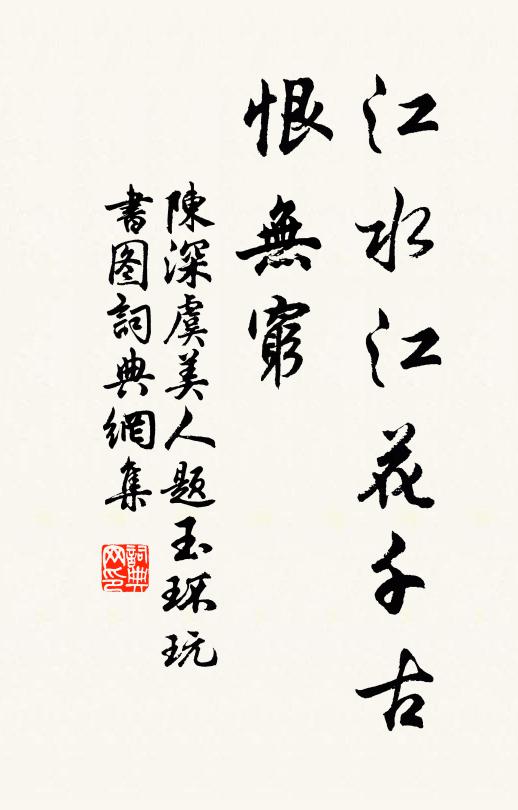 江水江花千古
恨無窮
陳深虞美人题玉环玩
書图詞典網集
詞典网印